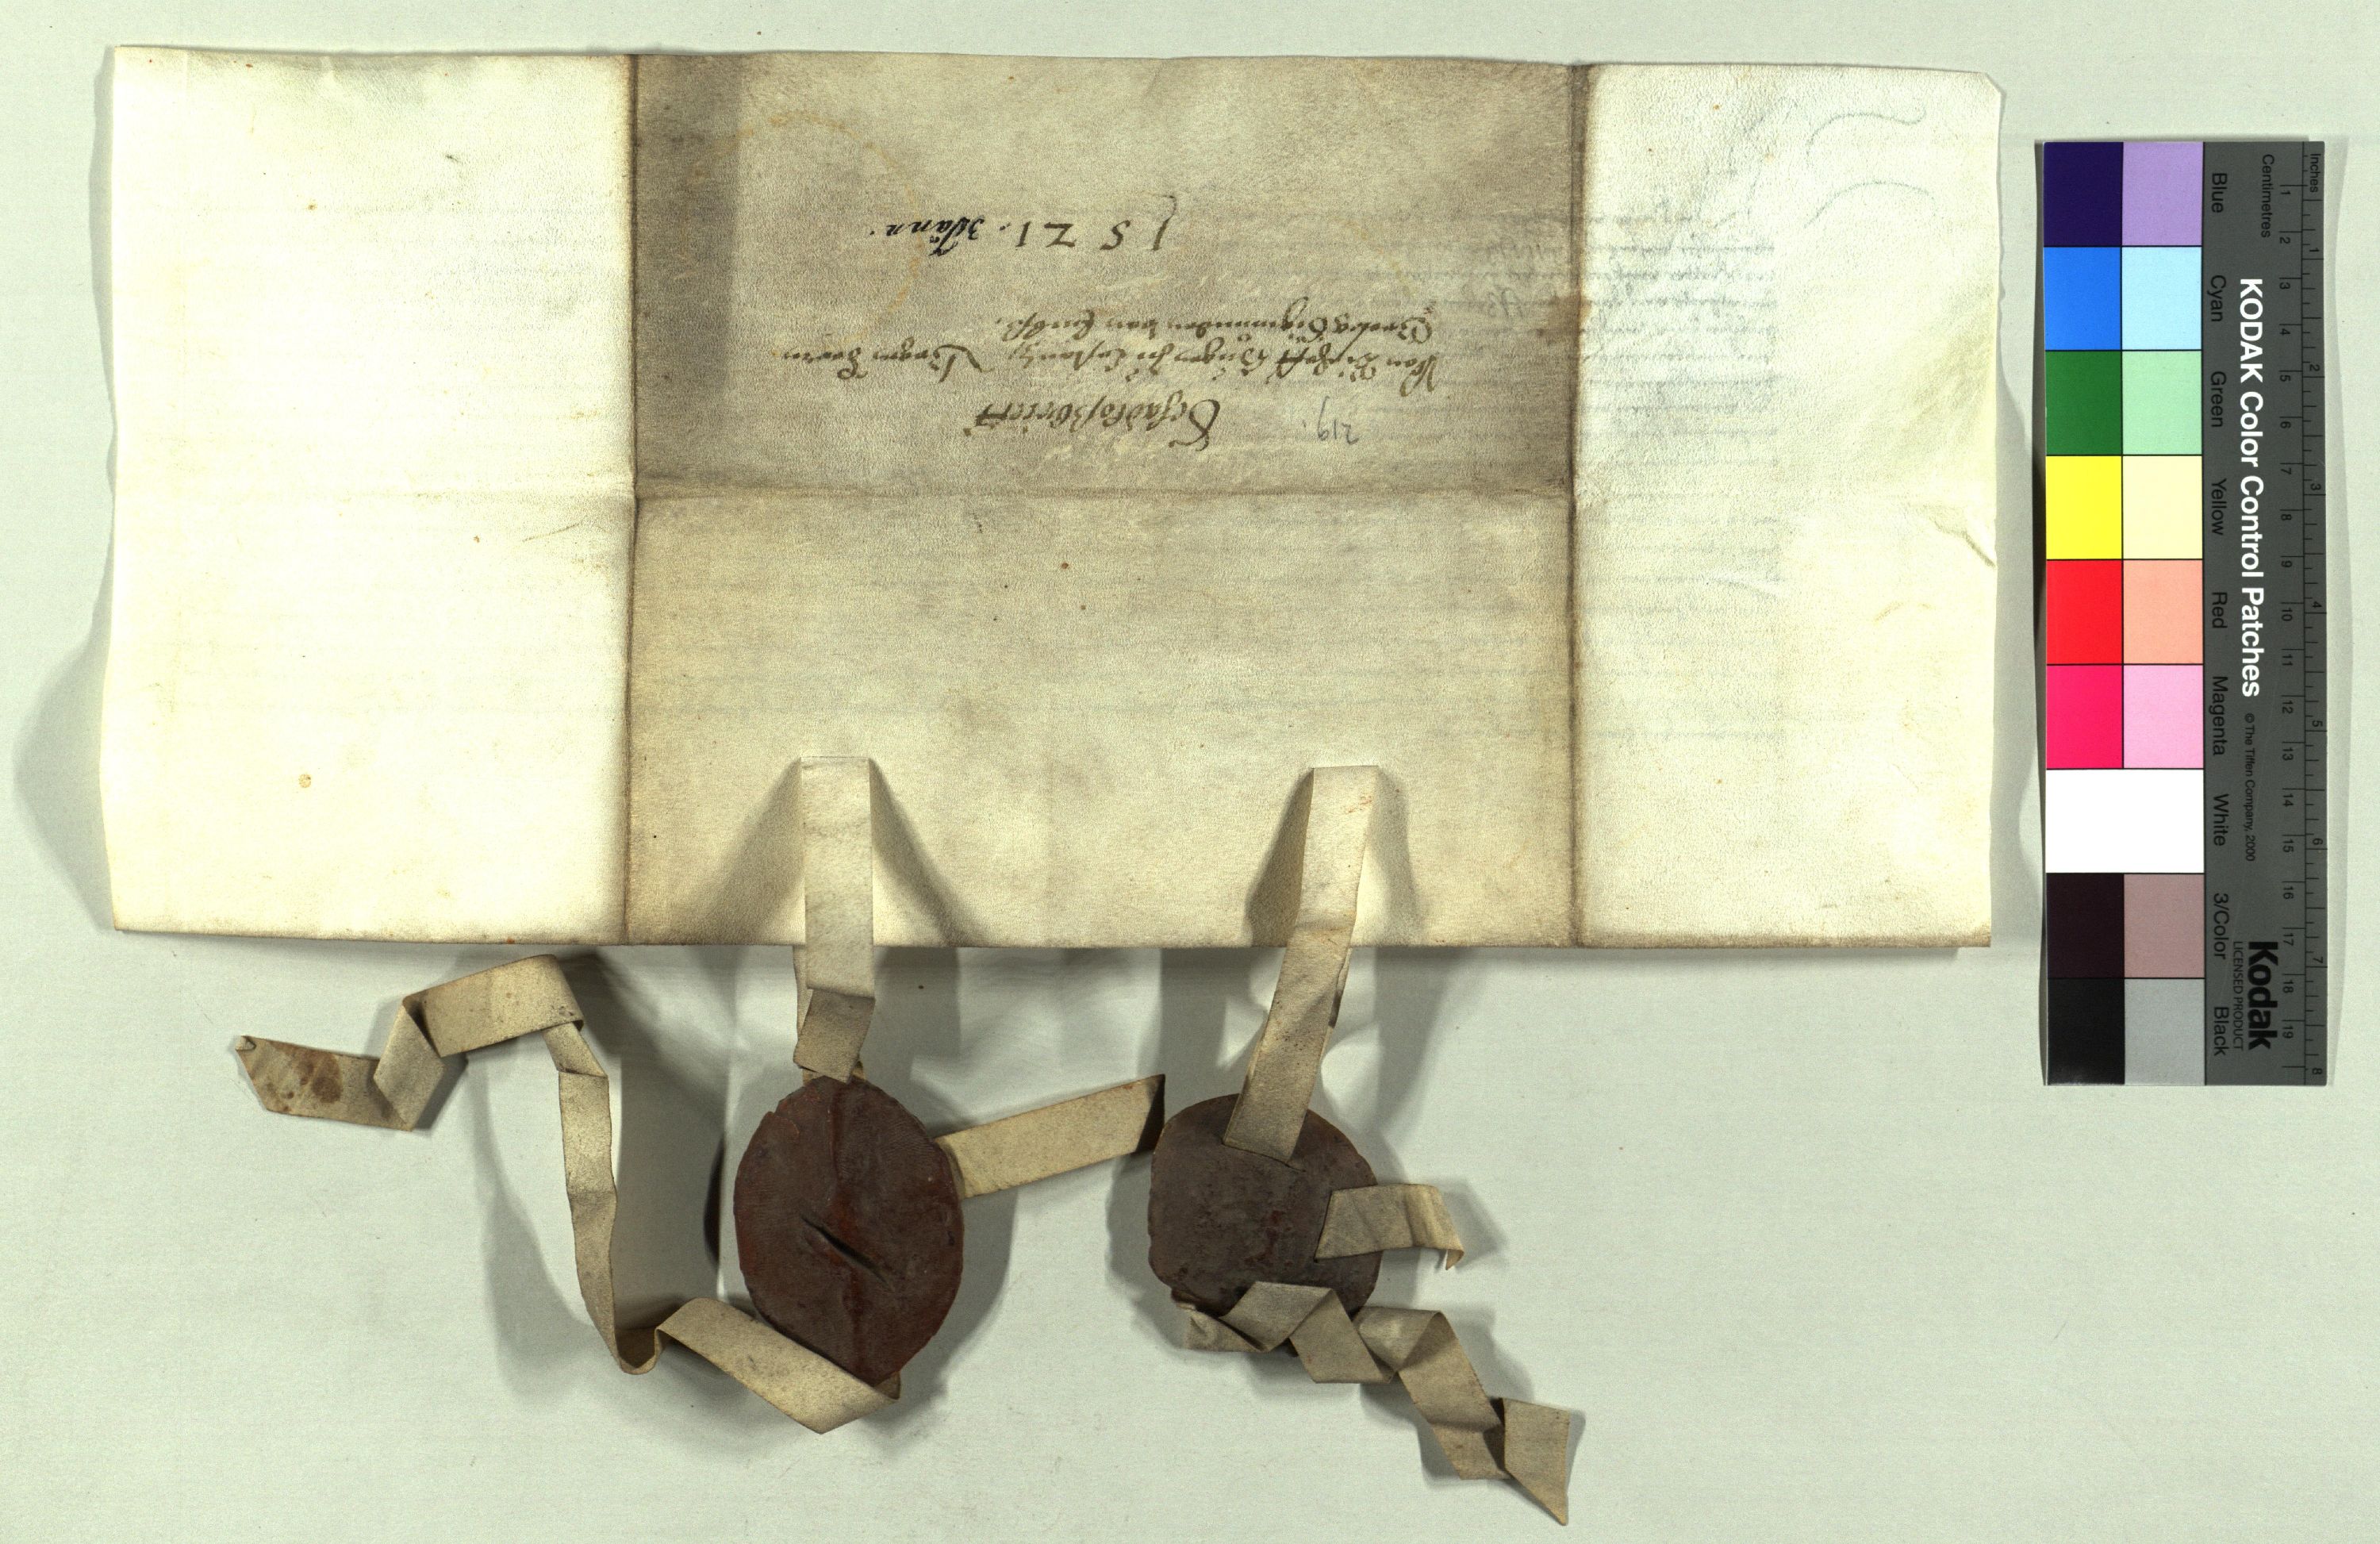 219.
Schadloßbrieff
Von Bischoff Hugen zu Costantz, Gegen Herrn
1521. Jänn.
KODAK Color Control Patches
© The Tiffen Company, 2000
Kodak
LICENSED PRODUCT
Inches
Centimetres
Blue
Cyan
Green
Yellow
Red
Magenta
White
3/Color
Black
1 2 3 4 5 6 7 8 9 10 11 12 13 14 15 16 17 18 19
1 2 3 4 5 6 7 8